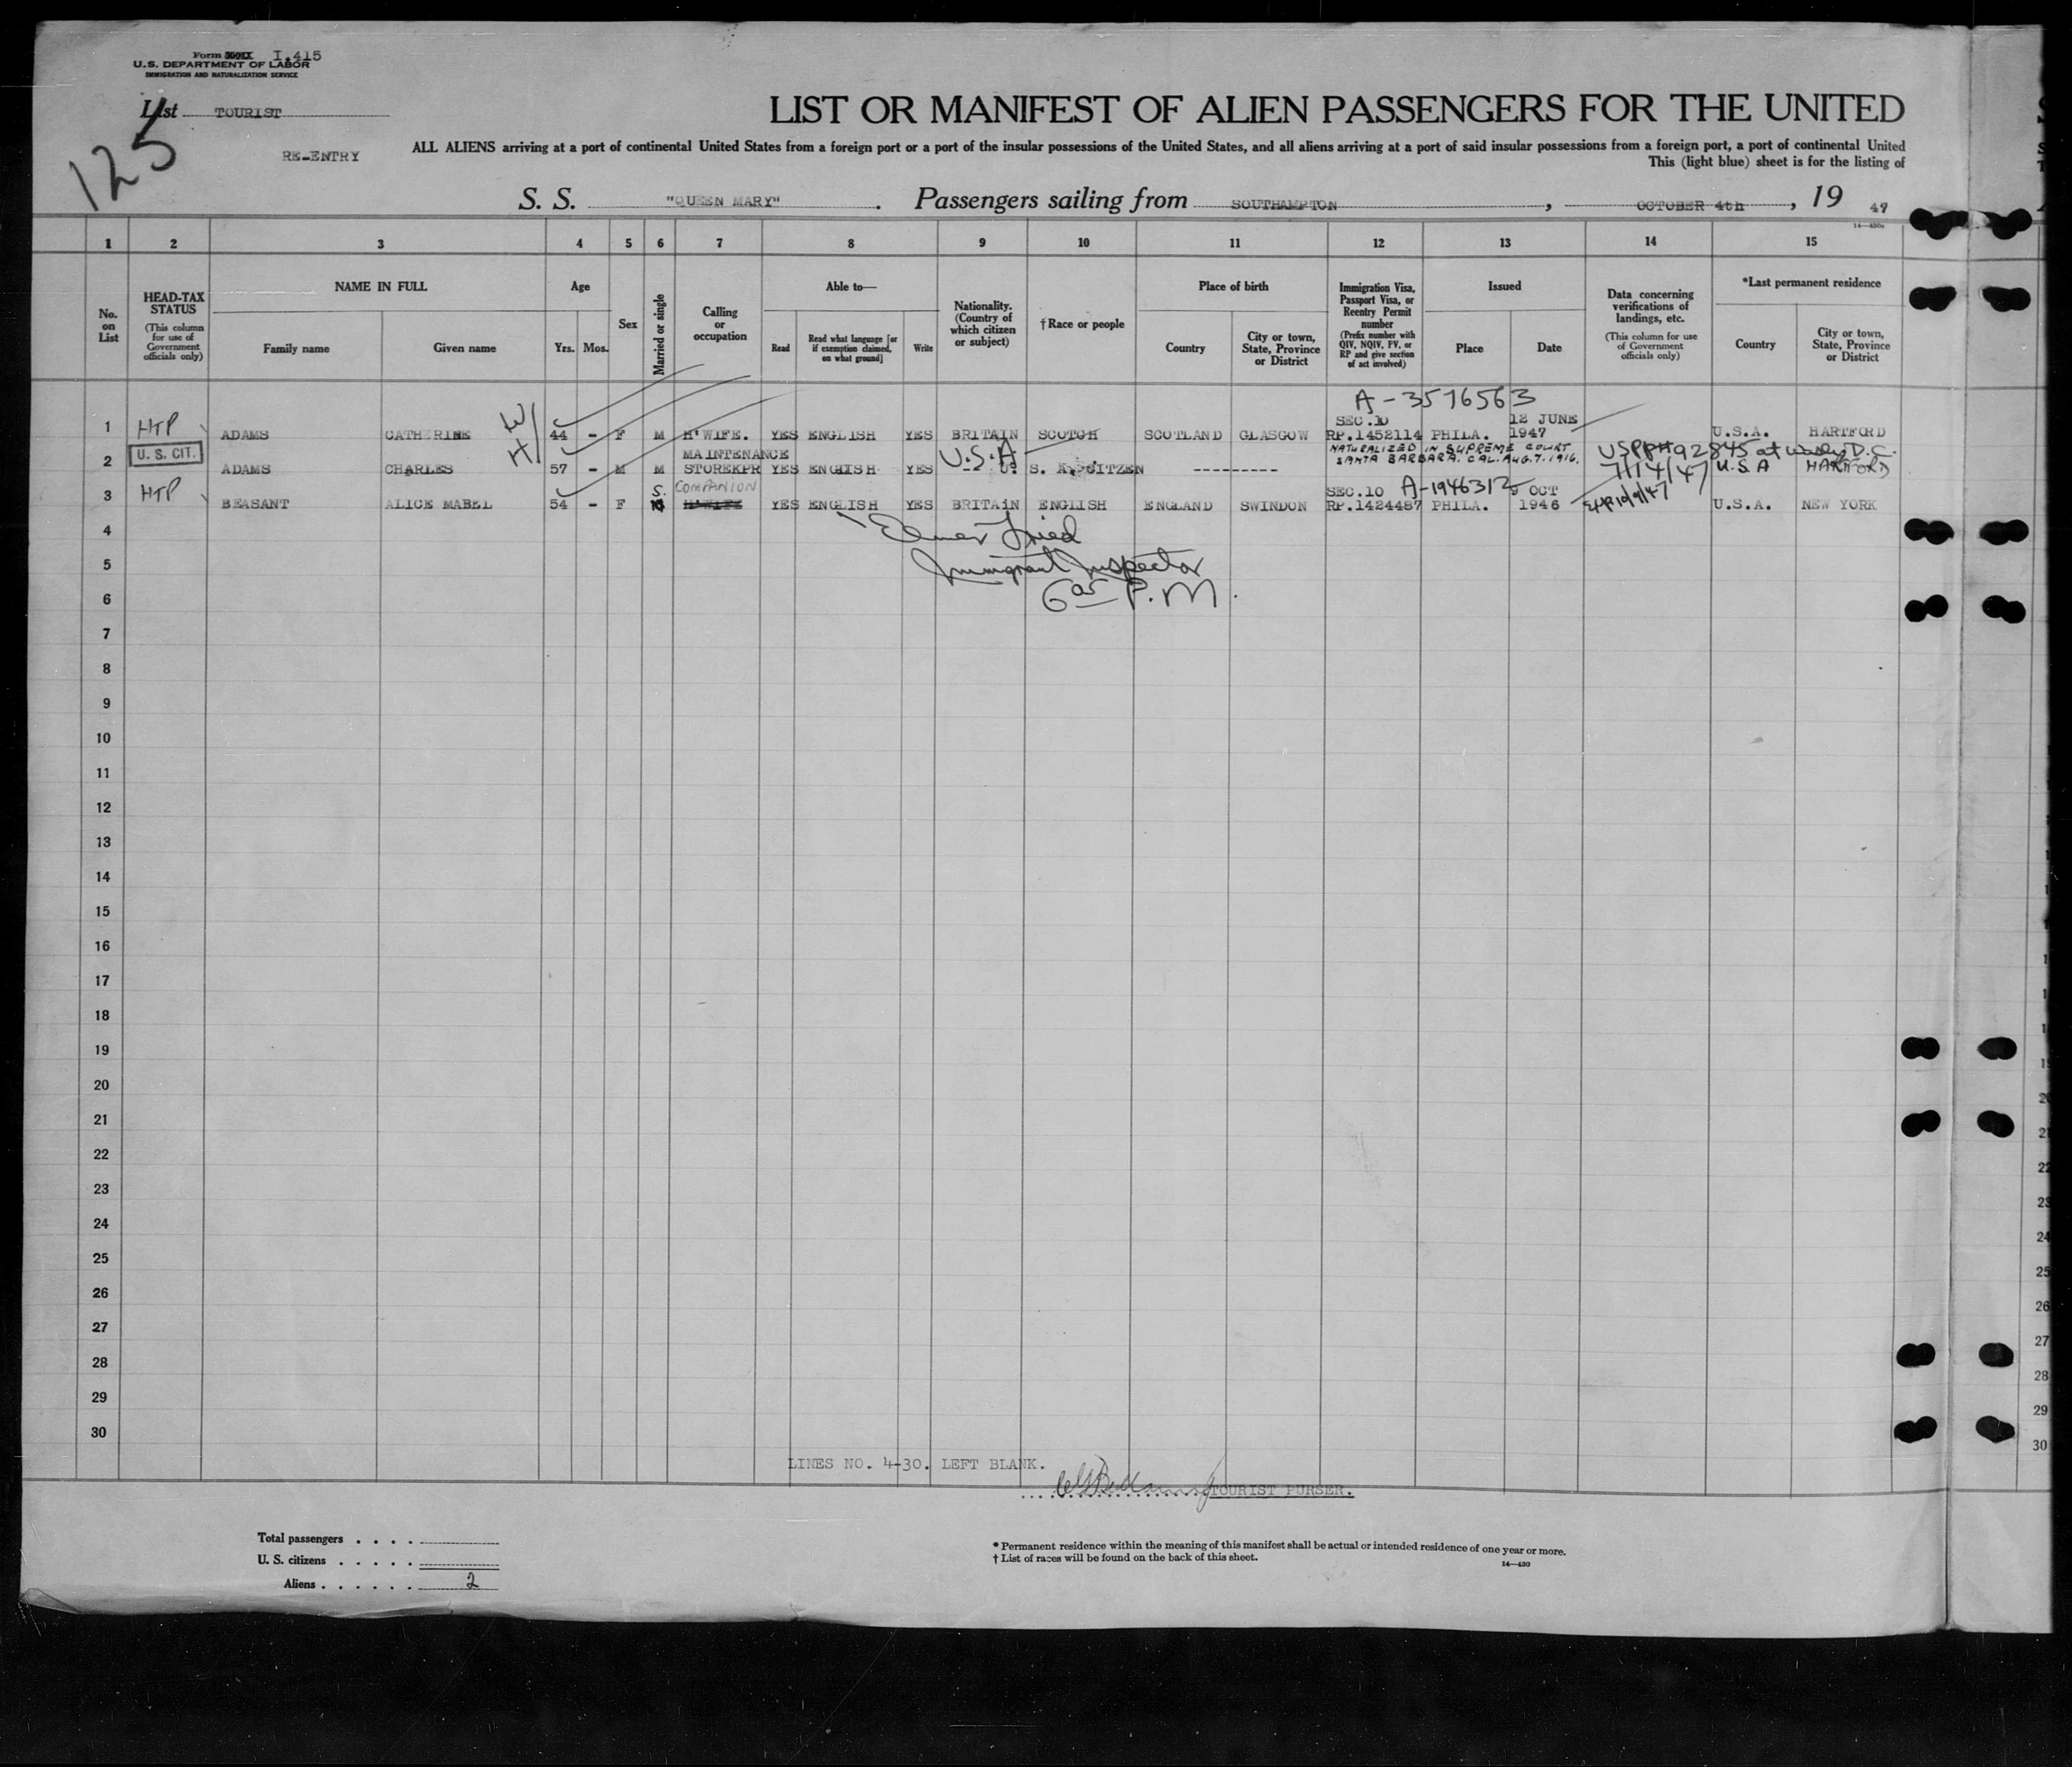 Form I.415
U.S. DEPARTMENT OF LABOR
IMMIGRATION AND NATURALIZATION SERVICE
List TOURIST
125
RE-ENTRY
LIST OR MANIFEST OF ALIEN PASSENGERS FOR THE UNITED
ALL ALIENS arriving at a port of continental United States from a foreign port or a port of the insular possessions of the United States, and all aliens arriving at a port of said insular possessions from a foreign port, a port of continental United
This (light blue) sheet is for the listing of
S. S. "QUEEN MARY". Passengers sailing from SOUTHAMPTON, OCTOBER 4th, 19 47
1 2 3 4 5 6 7 8 9 10 11 12 13 14 15
No. on List
HEAD-TAX STATUS (This column for use of Government officials only)
NAME IN FULL
Family name Given name
Age
Yrs. Mos.
Sex
Married or single
Calling or occupation
Able to—
Read Read what language [or if exemption claimed, on what ground] Write
Nationality. (Country of which citizen or subject)
†Race or people
Place of birth
Country City or town, State, Province or District
Immigration Visa, Passport Visa, or Reentry Permit number (Prefix number with QIV, NQIV, FV, or RP and give section of act involved)
Issued
Place Date
Data concerning verifications of landings, etc. (This column for use of Government officials only)
*Last permanent residence
Country City or town, State, Province or District
A-3576563
SEC.10 12 JUNE
1 HTP ADAMS CATHERINE W/ 44 - F M H'WIFE. YES ENGLISH YES BRITAIN SCOTCH SCOTLAND GLASGOW RP.1452114 PHILA. 1947 U.S.A. HARTFORD
U. S. CIT. MAINTENANCE U.S.A. NATURALIZED IN SUPREME COURT
2 ADAMS CHARLES H/ 57 - M M STOREKPR YES ENGLISH YES U. S. CITZEN --------- SANTA BARBARA. CAL. AUG. 7. 1916. 7/14/47 U.S.A HARTFORD
S. COMPANION SEC.10 A-1946312 9 OCT
3 HTP BEASANT ALICE MABEL 54 - F H'WIFE YES ENGLISH YES BRITAIN ENGLISH ENGLAND SWINDON RP.1424487 PHILA. 1946 U.S.A. NEW YORK
4 Elmer Fried
5 Immigrant Inspector
6 P.M.
7
8
9
10
11
12
13
14
15
16
17
18
19
20
21
22
23
24
25
26
27
28
29
30
LINES NO. 4-30. LEFT BLANK.
TOURIST PURSER.
Total passengers . . . .
U. S. citizens . . . . .
Aliens . . . . . . 2
* Permanent residence within the meaning of this manifest shall be actual or intended residence of one year or more.
† List of races will be found on the back of this sheet.
14—430